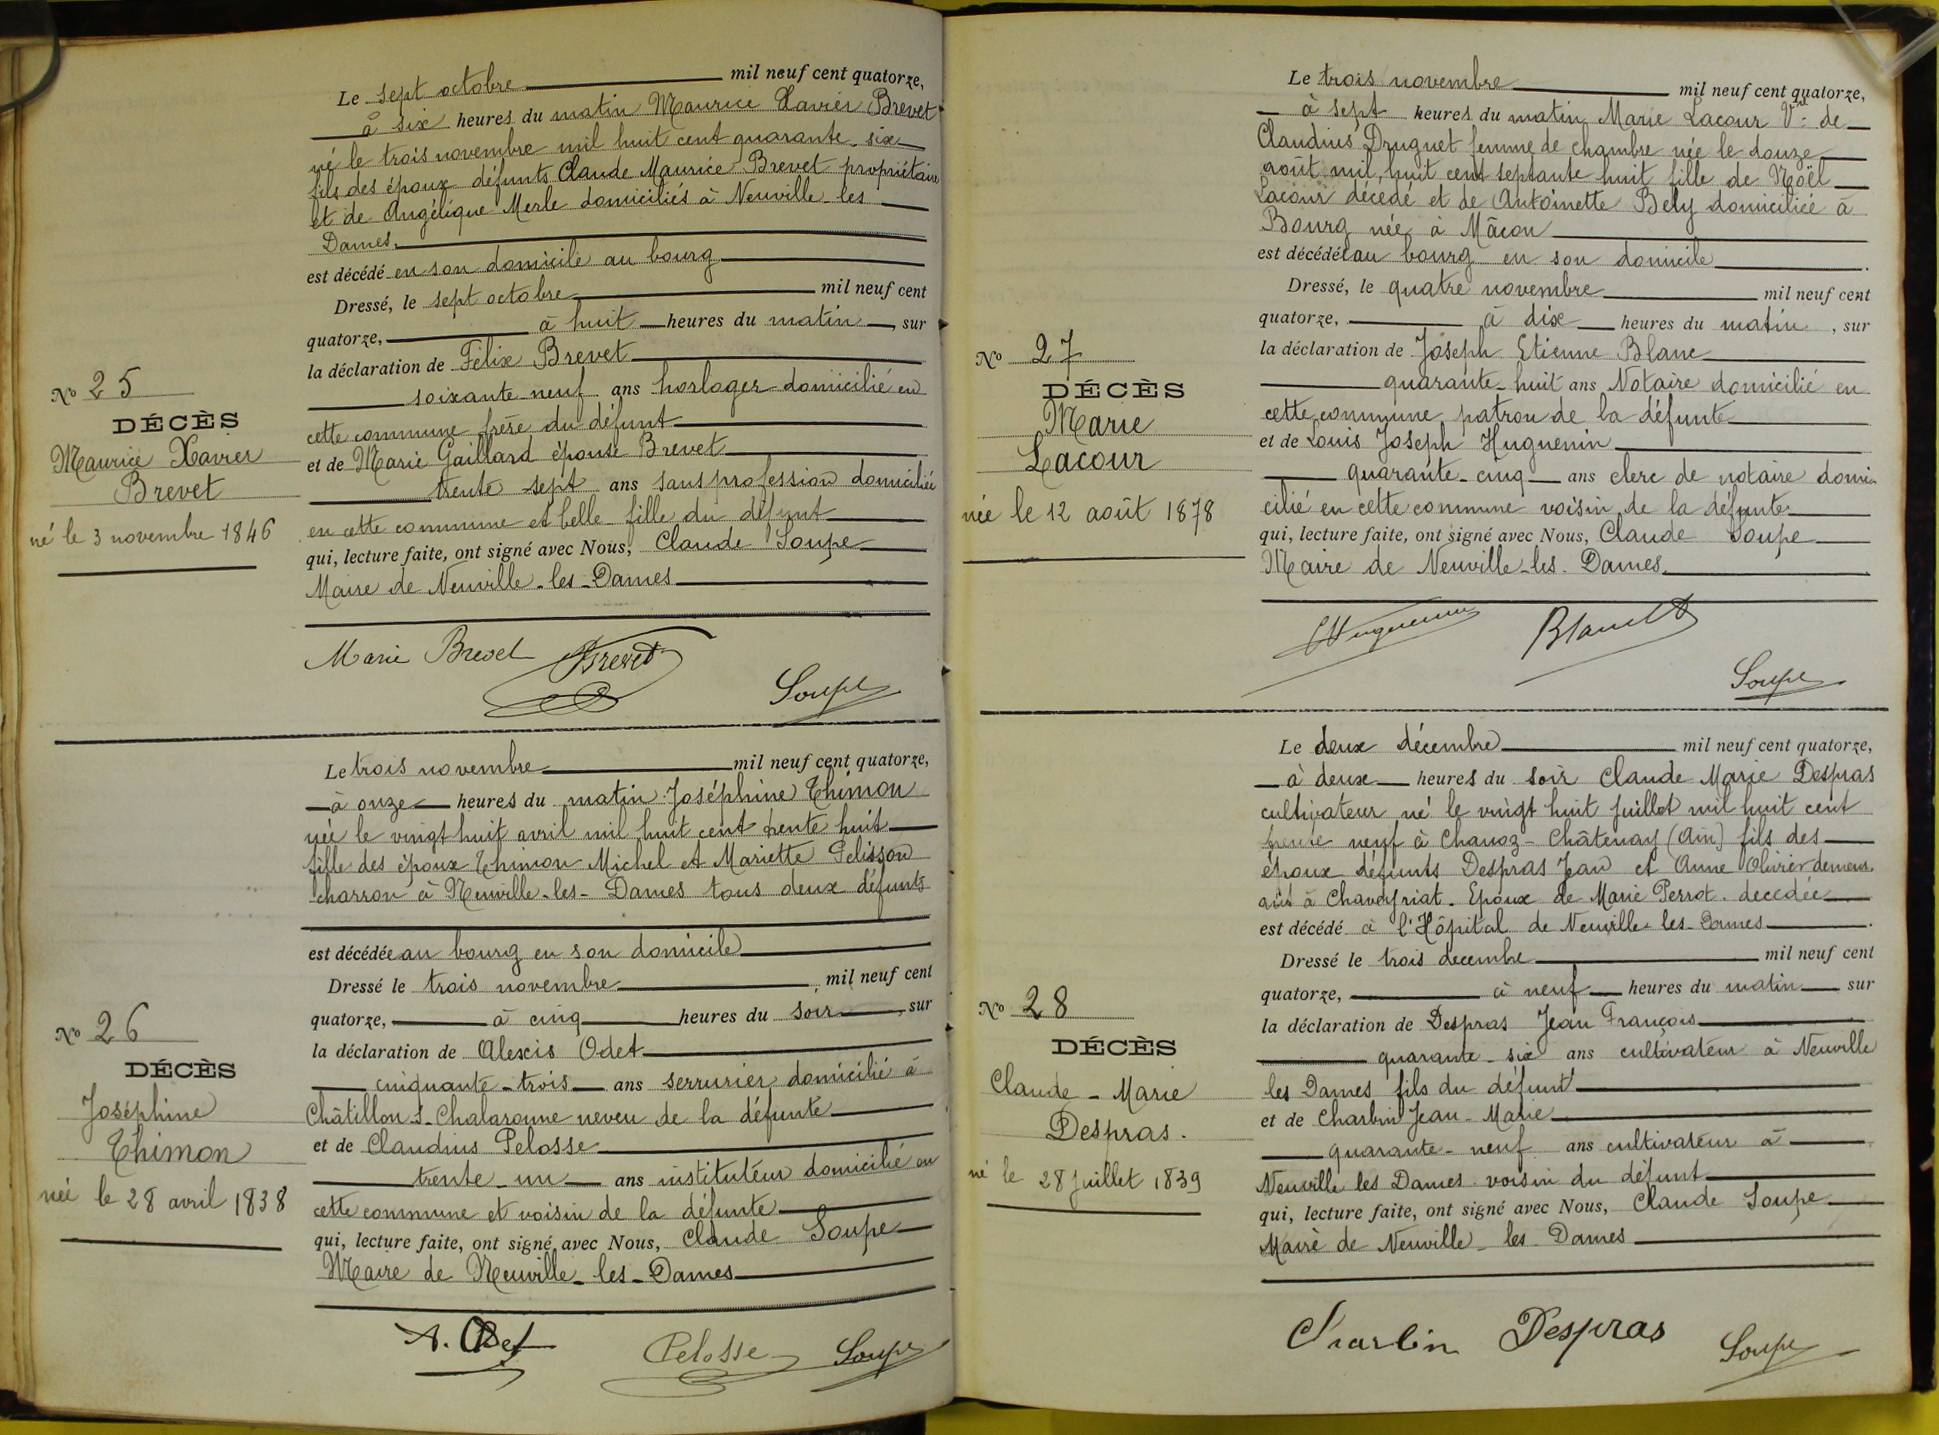 Le sept octobre mil neuf cent quatorze,
à six heures du matin Maurice Xavier Brevet
né le trois novembre mil huit cent quarante-six
fils des époux défunts Claude Maurice Brevet propriétaire
et de Angélique Merle domiciliés à Neuville-les
Dames.
est décédé en son domicile au bourg
Dressé, le sept octobre mil neuf cent
quatorze, à huit heures du matin, sur
la déclaration de Félix Brevet
soixante neuf ans horloger domicilié en
cette commune frère du défunt
et de Marie Gaillard épouse Brevet
trente sept ans sans profession domiciliée
en cette commune et belle-fille du défunt
qui, lecture faite, ont signé avec Nous, Claude Soupe
Maire de Neuville-les-Dames
Nº 25
DÉCÈS
Maurice Xavier
Brevet
né le 3 novembre 1846
Marie Brevet Brevet
Soupe
Le trois novembre mil neuf cent quatorze,
à onze heures du matin Joséphine Thimon
née le vingt huit avril mil huit cent trente huit
fille des époux Thimon Michel et Mariette Pelisson
charron à Neuville-les-Dames tous deux défunts
est décédée au bourg en son domicile
Dressé le trois novembre, mil neuf cent
quatorze, à cinq heures du soir, sur
la déclaration de Alexis Odet
cinquante-trois ans serrurier domicilié à
Châtillon-s-Chalaronne neveu de la défunte
et de Claudius Pelosse
trente-un ans instituteur domicilié en
cette commune et voisin de la défunte
qui, lecture faite, ont signé avec Nous, Claude Soupe
Maire de Neuville-les-Dames
Nº 26
DÉCÈS
Joséphine
Thimon
née le 28 avril 1838
A. Odet Pelosse Soupe
Le trois novembre mil neuf cent quatorze,
à sept heures du matin Marie Lacour Vve de
Claudius Druguet femme de chambre née le douze
août mil huit cent septante huit fille de Noël
Lacour décédé et de Antoinette Bely domiciliée à
Bourg née à Mâcon
est décédée au bourg en son domicile.
Dressé, le quatre novembre mil neuf cent
quatorze, à dix heures du matin, sur
la déclaration de Joseph Etienne Blanc
quarante-huit ans Notaire domicilié en
cette commune patron de la défunte
et de Louis Joseph Huguenin
quarante-cinq ans clerc de notaire domi-
cilié en cette commune voisin de la défunte
qui, lecture faite, ont signé avec Nous, Claude Soupe
Maire de Neuville-les-Dames.
Nº 27
DÉCÈS
Marie
Lacour
née le 12 août 1878
Huguenin Blanc
Soupe
Le deux décembre mil neuf cent quatorze,
à deux heures du soir Claude Marie Despras
cultivateur né le vingt huit juillet mil huit cent
trente neuf à Chanoz-Châtenay (Ain) fils des
époux défunts Despras Jean et Anne Olivier demeur-
ant à Chaveyriat. Epoux de Marie Perrot. décédée
est décédé à l'Hôpital de Neuville-les-Dames.
Dressé le trois decembre mil neuf cent
quatorze, à neuf heures du matin sur
la déclaration de Despras Jean François
quarante-six ans cultivateur à Neuville
les Dames fils du défunt
et de Charbin Jean-Marie
quarante-neuf ans cultivateur à
Neuville les Dames voisin du défunt
qui, lecture faite, ont signé avec Nous, Claude Soupe
Maire de Neuville-les-Dames
Nº 28
DÉCÈS
Claude-Marie
Despras.
né le 28 Juillet 1839
Charbin Despras Soupe